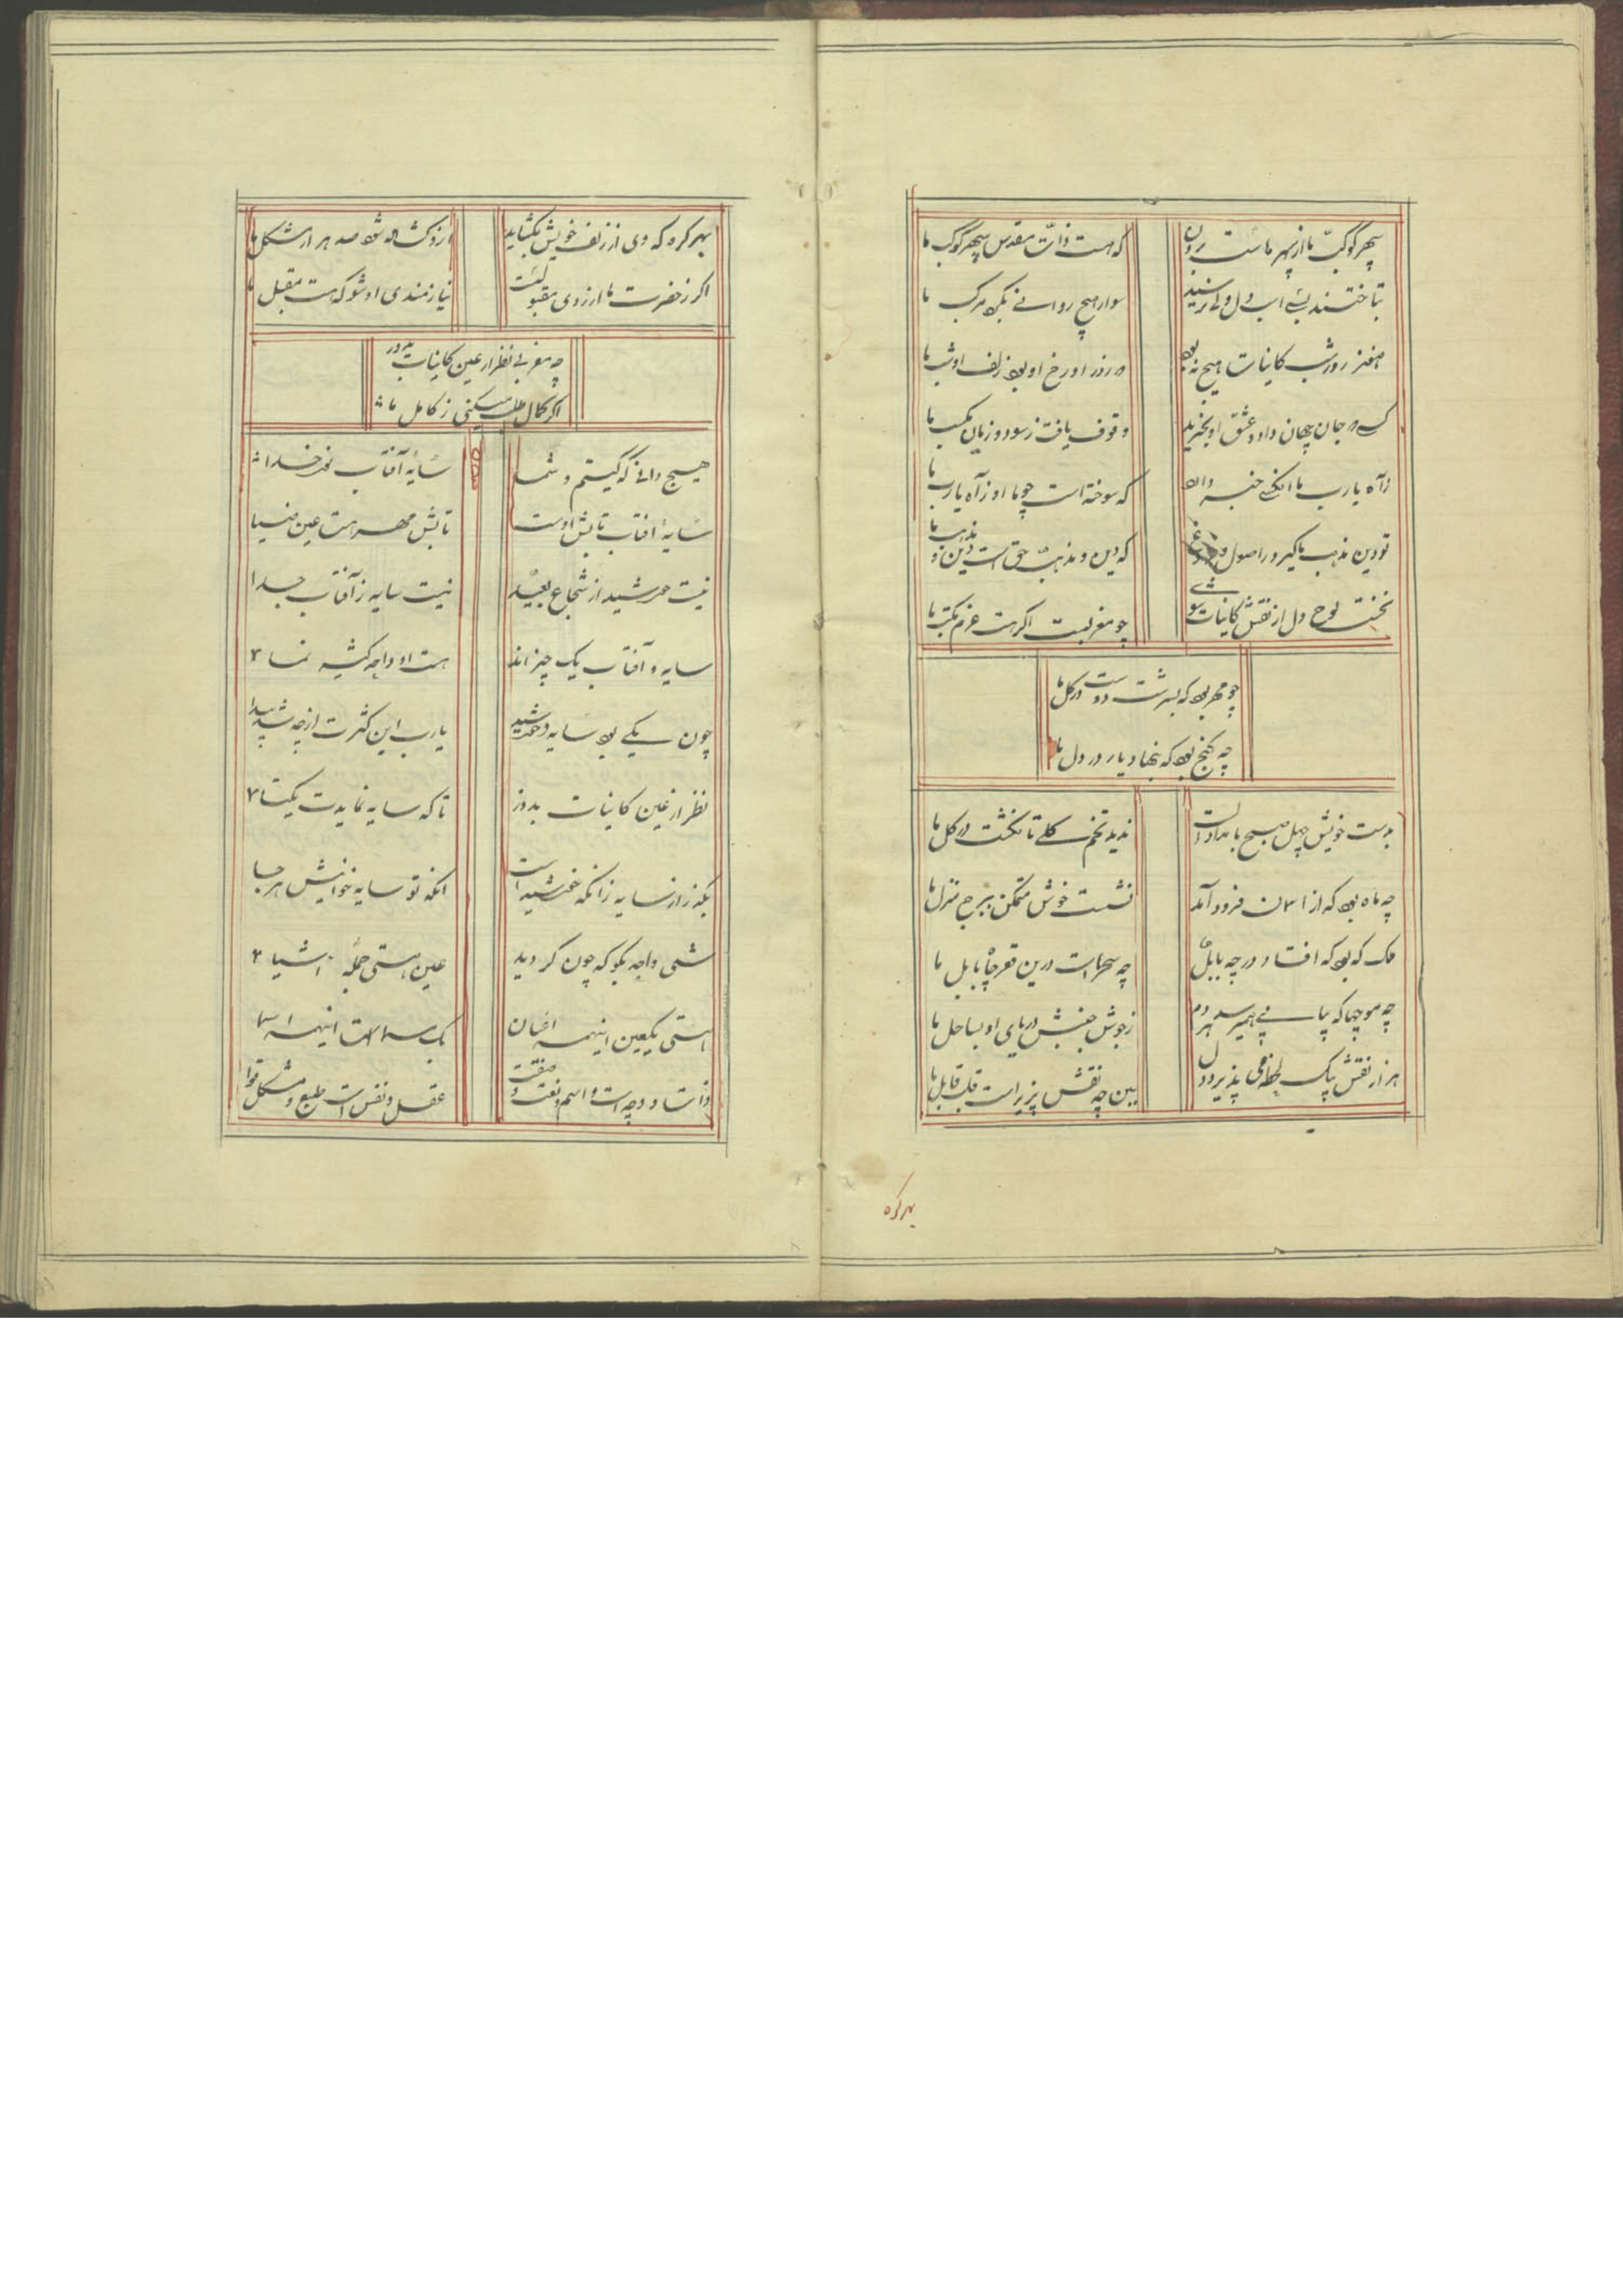 سپهر کوکب ما از سپهر ماست برون
که هست ذات مقدس سپهر کوکب ما
بتاختند بسے اسب دل ولے نرسید
سوار هیچ روانے بکرد مرکب ما
هنوز روز و شب کاینات هیچ نبود
که روز او رخ او بود زلف او شب ما
کسے که جان و جهان داد و عشق او بخرید
وقوف یافت ز سود و زیان مکسب ما
زآه یارب ما آنکسے خبر دارد
که سوخته است چو ما او زآه یارب ما
تو دین مذهب ما گیر در اصول و فروغ
که دین و مذهب حق است دین و مذهب ما
نخست لوح دل از نقش کاینات بشوے
چو مغربیت اگر هست عزم مکتب ما
چو مهر بود که بسرشت دوست در گل ما
چه گنج بود که بنهاد یار در دل ما
بدست خویش چهل صبح بامداد الست
ندید تخم گلے تا نکشت در گل ما
چه ماه بود که از آسمان فرود آمد
نشست خوش متمکن ببرج منزل ما
ملک که بود که افتاد در چه بابل
چه سحرهاست درین قعر چاه بابل ما
چه موجها که پیاپے همیرسد هردم
زجوش جنبش دریای او بساحل ما
هزار نقش بیک لحظه می پذیرد دل
ببین چه نقش پزیر است قلب قابل ما
بهر کره
بهر کره که وی از زلف خویش بکشاید
ازو کشاده شود صد هزار مشکل ما
اگر ز حضرت ما آرزوی مقبولیت
نیازمندی او شو که هست مقبل ما
چه مغربے نظر از عین کاینات بدوز
اگر کمال طلب میکنی ز کامل ما
هیچ دانے که کیستیم و شما
سایهٔ آفتاب نور خدا
سایهٔ آفتاب تابش اوست
تابش مهر هست عین ضیا
نیست خورشید از شعاع بعید
نیست سایه ز آفتاب جدا
سایه و آفتاب یک چیزاند
هست او واحد کثیر نما
چون یکے بود سایه و خورشید
یارب این کثرت از چه شد پیدا
نظر از عین کاینات بدوز
تا که سایه نمایدت یکتا
بگذر از سایه زانکه خورشید است
آنکه تو سایه خوانیش هرجا
شی واحد بگو که چون گردید
عین هستی جمله اشیا
هستی یکعین اینهمه اعیان
یک مسما هست اینهمه اسما
ذات و وجه است و اسم و نعت و صفت
عقل و نفس است و طبع و شکل و قوا